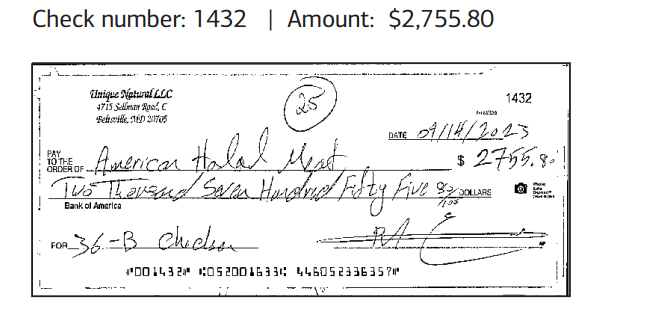 Check number: 1432 | Amount: $2,755.80
Unique Natural LLC
4715 Sellman Road, C
Beltsville, MD 20705
25
1432
DATE 09/14/2023
PAY TO THE ORDER OF American Halal Meat $ 2755.80
Two Thousand Seven Hundred Fifty Five 80/100 DOLLARS
Bank of America
FOR 36-B Chicken
⑈001432⑈ ⑆052001633⑆ 446052336357⑈